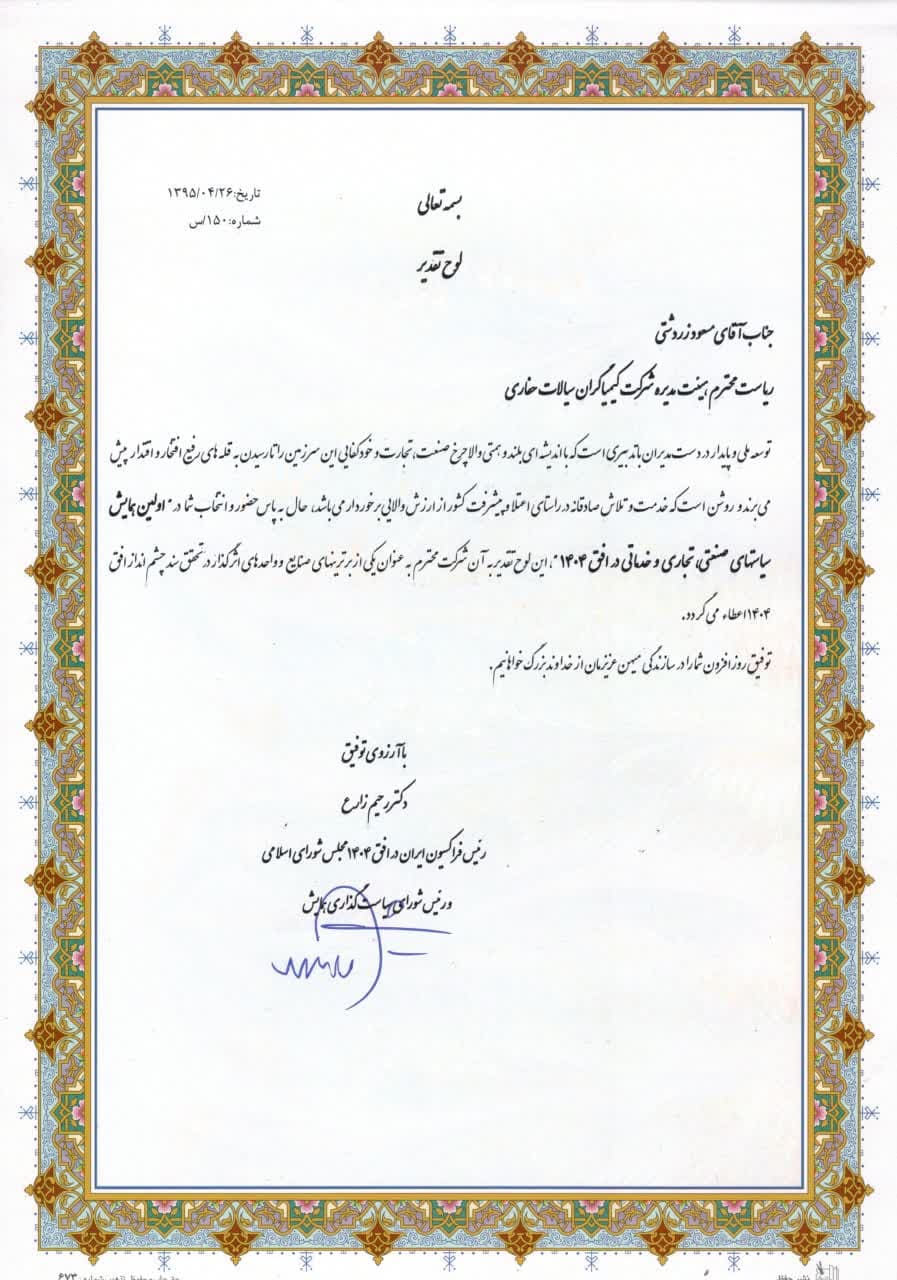 تاریخ:۱۳۹۵/۰۴/۲۶
شماره:۱۵۰/س
بسمه تعالی
لوح تقدیر
جناب آقای مسعود زردشتی
ریاست محترم هیئت مدیره شرکت کیمیاگران سیالات حفاری
توسعه ملی و پایدار در دست مدیران با تدبیری است که با اندیشه ای بلند و همتی والا چرخ صنعت، تجارت و خودکفایی این سرزمین را تا رسیدن به قله های رفیع افتخار و اقتدار پیش
می برند و روشن است که خدمت و تلاش صادقانه در راستای اعتلا و پیشرفت کشور از ارزش والایی برخوردار می باشد، حال به پاس حضور و انتخاب شما در " اولین همایش
سیاستهای صنعتی، تجاری و خدماتی در افق ۱۴۰۴"، این لوح تقدیر به آن شرکت محترم به عنوان یکی از برترینهای صنایع و واحدهای اثرگذار در تحقق سند چشم انداز افق
۱۴۰۴ اعطاء می گردد.
توفیق روز افزون شما را در سازندگی میهن عزیزمان از خداوند بزرگ خواهانیم.
با آرزوی توفیق
دکتر رحیم زارع
رئیس فراکسیون ایران در افق ۱۴۰۴ مجلس شورای اسلامی
و رئیس شورای سیاست گذاری همایش